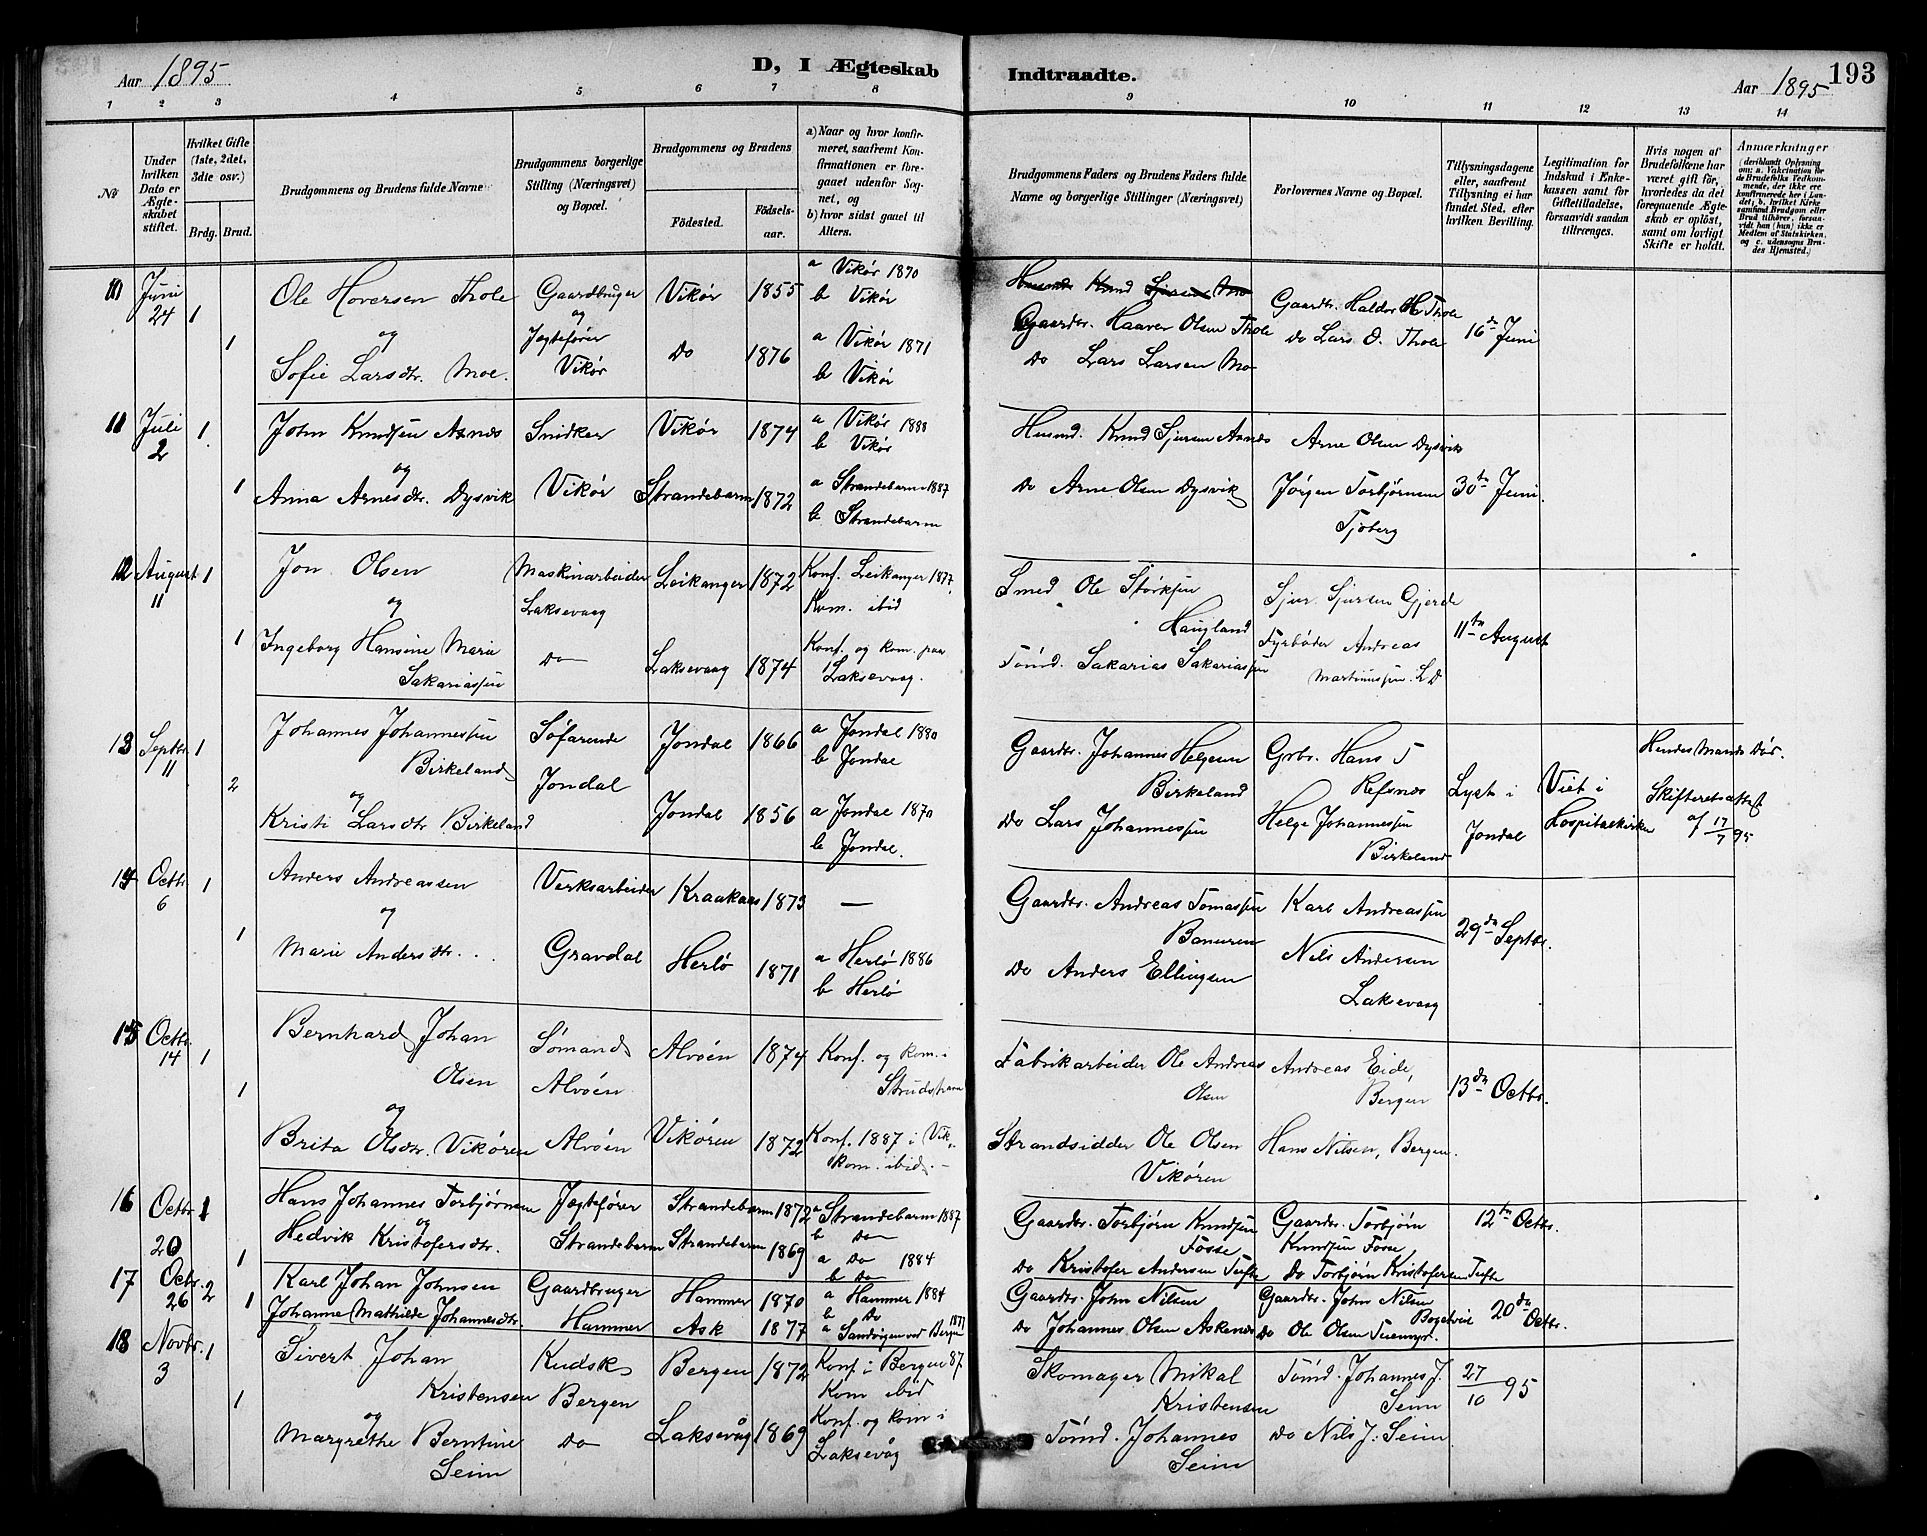 Aar 1895
D, I Ægteskab
Indtraadte.
Aar 1895
193
1 2 3 4 5 6 7 8 9 10 11 12 13 14
No
Under hvilken Dato er Ægteskabet stiftet.
Hvilket Gifte (1ste, 2det, 3die osv.)
Brdg. Brud.
Brudgommens og Brudens fulde Navne
Brudgommens borgerlige Stilling (Næringsvei) og Bopæl.
Brudgommens og Brudens
Födested.
Födsels-aar.
a) Naar og hvor konfirmeret, saafremt Konfirmationen er foregaaet udenfor Sognet, og
b) hvor sidst gaaet til Alters.
Brudgommens Faders og Brudens Faders fulde Navne og borgerlige Stillinger (Næringsvei)
Forlovernes Navne og Bopæl.
Tillysningsdagene eller, saafremt Tillysning ei har fundet Sted, efter hvilken Bevilling.
Legitimation for Indskud i Enkekassen samt for Giftetilladelse, forsaavidt saadan tiltrænges.
Hvis nogen af Brudefolkene har været gift för, hvorledes da det foregaaende Ægteskab er oplöst, samt om lovligt Skifte er holdt.
Anmærkninger (deriblandt Oplysning om: a. Vakcination for de Brudefolks Vedkommende, der ikke ere konfirmerede her i Landet; b. hvilket Kirkesamfund Brudgom eller Brud tilhörer, forsaavidt han (hun) ikke er Medlem af Statskirken, og c. udensogns Brudes Hjemsted.)
10 Juni 24 1 Ole Hoversen Thole Gaardbruger Vikør 1855 a Vikør 1870 b Vikør
og og
1 Sofie Larsdtr. Moe. Jagtefører Vikør Do 1876 a Vikør 1871 b Vikør
Husmd. Knud Sjursen Mo
Gaardbr. Haaver Olsen Thole Gaardbr. Haldor H. Thole 16de Juni
Do Lars Larsen Mo do Lars O. Thole
11 Juli 2 1 John Knudsen Asnes Snidker Vikør 1874 a Vikør 1888 b Vikør
og
1 Anna Arnesdtr. Dysvik Vikør Strandebarm 1872 a Strandebarm 1887 b Strandebarm
Husmd. Knud Sjursen Asnes Arne Olsen Dysvik
Do Arne Olsen Dysvik Jørgen Torbjørnsen Tjoberg 30te Juni.
12 August 11 1 Jon Olsen Maskinarbeider Laksevaag Leikanger 1872 Konf. Leikanger 1877. Kom. ibid
og
1 Ingeborg Hansine Marie Sakariassen Do Laksevaag 1874 Konf. og kom. paa Laksevaag.
Smed Ole Størksen Haugland Sjur Sjursen Gjerde 11te August
Tømd. Sakarias Sakariassen Fyrbøder Andreas Martinussen. LD
13 Septbr. 11 1 Johannes Johannessen Birkeland Søfarende Jondal Jondal 1866 a Jondal 1880 b Jondal
og
2 Kristi Larsdtr Birkeland Jondal 1856 a Jondal 1870 b Jondal.
Gaardbr. Johannes Helgesen Birkeland Grbr. Hans Refsnes Lyst i Jondal Viet i Hospitalkirken Hendes Mands Død.
Do Lars Johannessen Helge Johannessen Birkeland Skifteretsattest af 17/7 95
14 Octbr. 6 1 Anders Andreassen Verksarbeider Kraakaas 1873 —
og
1 Marie Andersdtr. . . Gravdal Herlø 1871 a Herlø 1886 b Herlø
Gaardbr. Andreas Tomassen Karl Andreassen 29de Septbr.
Do Anders Ellingsen Nils Andersen Laksevaag
15 Octbr. 14 1 Bernhard Johan Olsen Sømand Alvøen Alvøen 1874 Konf. og kom. i
og
1 Brita Olsdtr. Vikøren Alvøen Vikøren 1872 Konf. 1887 i Vik., kom. ibid. –
Fabrikarbeider Ole Andreas Olsen Andreas Eide, Bergen 13de Octbr.
Strandsidder Ole Olsen Vikøren Hans Nilsen, Bergen.
16 Octbr. 20 1 Hans Johannes Torbjørnsen Jagtefører Strandebarm 1872 a Strandebarm 1887 b Do
og
1 Hedvik Kristofersdtr. Strandebarm Strandebarm 1869 a Do 1884 b Do
Gaardbr. Torbjørn Knudsen Fosse Gaardbr. Torbjørn Knudsen Fosse 12te Octbr.
Do Kristofer Andersen Tufte Do Torbjørn Kristofersen Tufte
17 Octbr. 26 2 Karl Johan Johnsen Gaardbruger Hammer 1870 a Hammer 1884 b Do
1 Johanna Mathilde Johannesdtr. Hammer Ask 1877 a Sandvigen ved Bergen 1891
Gaardbr. John Nilsen Gaardbr. John Nilsen 20de Octbr.
Do Johannes Olsen Askenes Do Ole Olsen
18 Novbr. 3 1 Sivert Johan Kristensen Kudsk Bergen Bergen 1872 Konf. i Bergen 87 Kom ibid
og
1 Margrethe Berntine Seim Do Laksevåg 1869 Konf. og kom i Laksevåg
Skomager Mikal Kristensen Tømd. Johannes J. Seim 27/10 95
Tømd. Johannes Seim Do Nils J. Seim